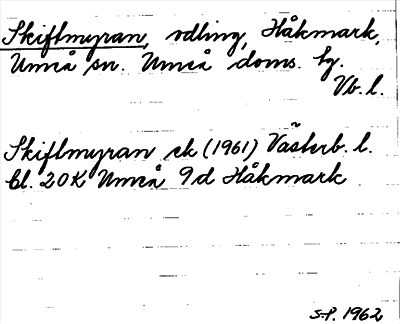 Skiftmyran, odling, Håkmark,
Umeå sn. Umeå doms. hg.
Vb. l.
Skiftmyran ek (1961) Västerb. l.
bl. 20K Umeå 9d Håkmark
S-P. 1962